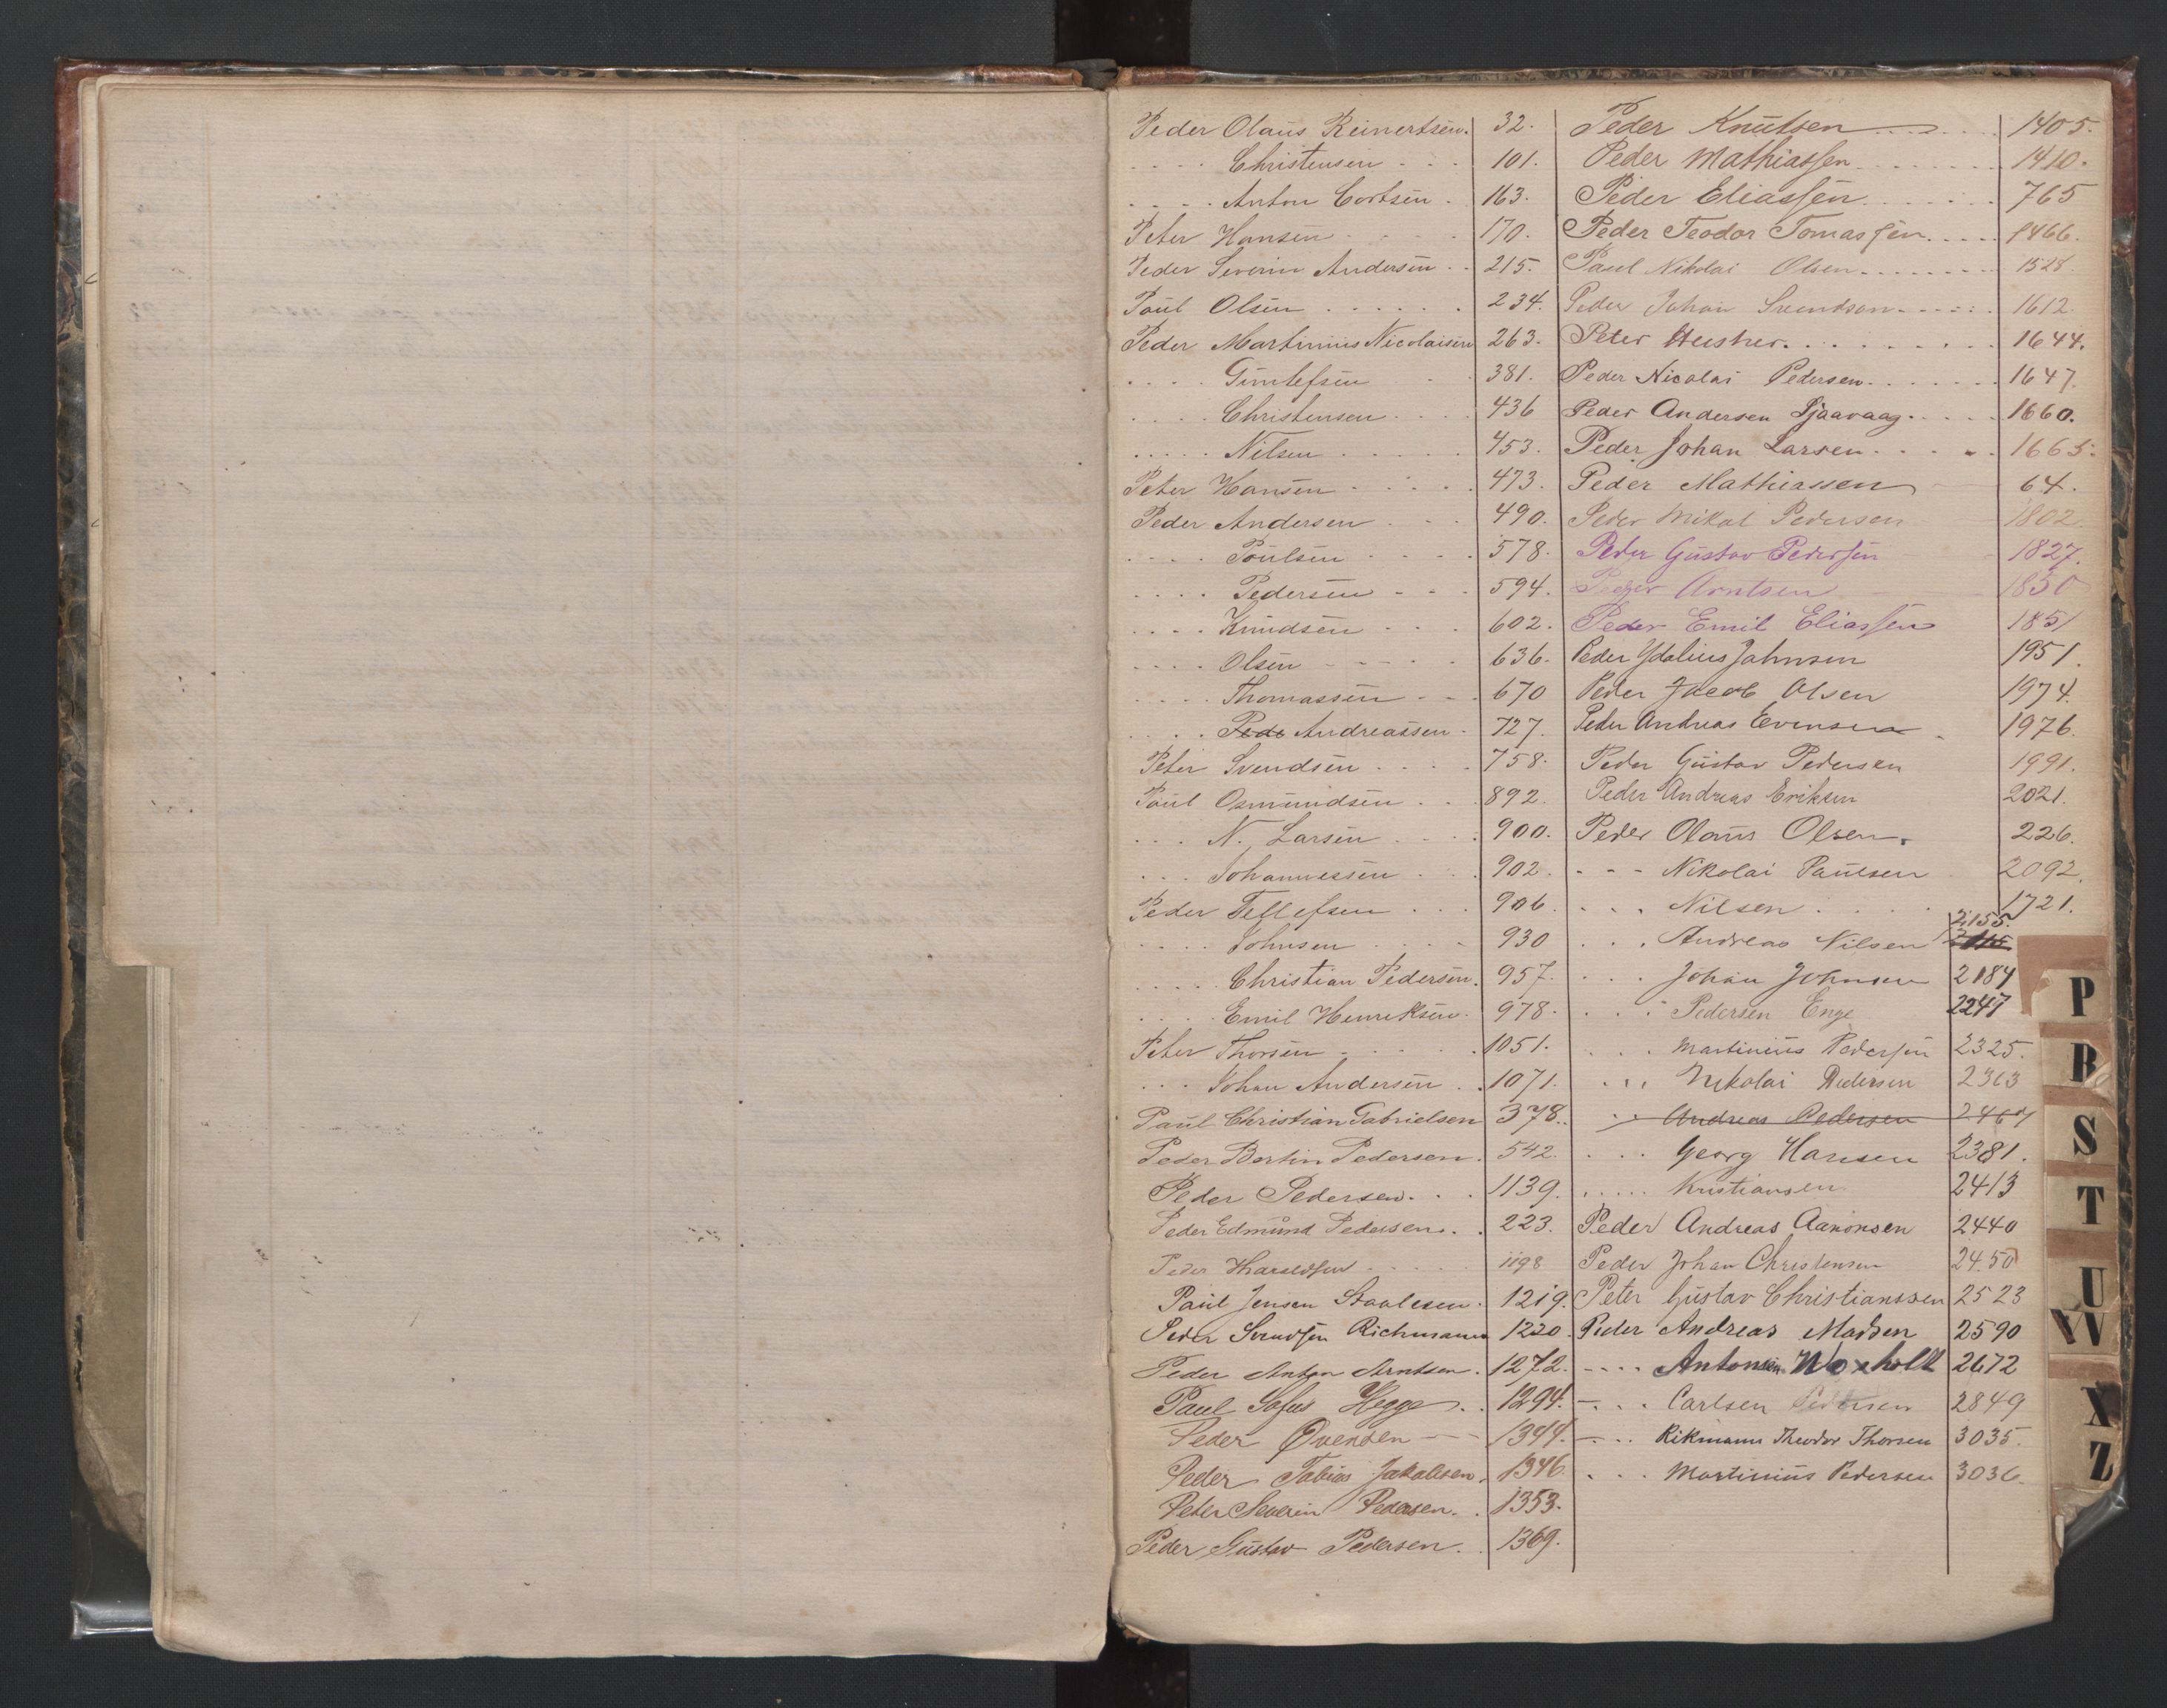 Peder Olaus Reinertsen. 32.
. . . . Christensen . . . 101.
. . . . Anton Cortsen . 163.
Peter Hansen . . . . 170.
Peder Severin Andersen . . 215.
Paul Olsen . . . . . . 234.
Peder Martinius Nicolaisen 263.
. . . . Guntefsen . . 381.
. . . . Christensen . . . . 436
. . . . . Nilsen . . . . . 453.
Peter Hansen . . . . . 473.
Peder Andersen . . . 490.
. . . . Poulsen . . . . 578.
. . . . Pedersen - - - 594.
. . . . Knudsen . . . 602.
. . . . Olsen - - - - . 636.
. . . . Thomassen - - . 670
. . . . Pede Andreassen . 727.
Peter Svendsen . . . . 758.
Paul Osmundsen . . . 892.
. . . N. Larsen . . . . 900.
. . . Johannessen . . . 902.
Peder Tellefsen . . . 906.
. . . . Johnsen . . . . 930
. . . . . Christian Pedersen. 957.
. . . . Emil Henriksen. 978.
Peter Thorsen . . . . . 1051.
. . . Johan Andersen . . 1071.
Paul Christian Gabrielsen 378..
Peder Bertin Pedersen. 542.
Peder Pedersen. . . 1139.
Peder Edmund Pedersen. . . 223.
Peder Haraldsen . . . . . 1198
Paul Jensen Staalesen. 1219.
Peder Svendsen Richmann 1220.
Peder Anton Arntsen. 1272.
Paul Sofus Hegge . . 1294.
Peder Ovensen - - 1344.
Peder Tobias Jakobsen. 1346.
Peter Severin Pedersen. . 1353.
Peder Gustav Pedersen. . 1369.
Peder Knutsen . . . . . . 1405.
Peder Mathiassen . . . . . 1410.
Peder Eliassen . . . . . . 765
Peder Teodor Tomassen. . . . . 1466.
Paul Nikolai Olsen . . . . . . . 1528.
Peder Johan Svendsen . . . . . 1612.
Peter . . . . . . . . . 1644.
Peder Nicolai Pedersen. . . . . . . 1647.
Peder Andersen Tjaavaag. . . . . 1660.
Peder Johan Larsen . . . . . 1665.
Peder Mathiassen 64.
Peder Mikal Pedersen 1802.
Peder Gustav Pedersen 1827.
Peder Arntsen 1850
Peder Emil Eliassen 1851
Peder Ydalius Johnsen 1951.
Peder Jacob Olsen 1974.
Peder Andreas Evensen . 1976.
Peder Gustav Pedersen 1991.
Peder Andreas Eriksen 2021.
Peder Olaus Olsen. 226.
- - - Nikolai Paulsen 2092.
. . . Nilsen . . . . 1721.
2155.
. . . Andreas Nilsen
. . . Johan Johnsen 2184
. . . Pedersen Enge 2247
. . . Martinius Pedersen 2325.
. . . Nikolai Pedersen 2363
. . Andreas Pedersen 2464
. . . Georg Hansen 2381.
. . . . . Kristiansen 2413
Peder Andreas Aanonsen 2440
Peder Johan Christensen 2450
Peter Gustav Christianssen 2523
Peder Andreas Madsen 2590
- - . . Antonsen Woxholt 2672
- . . . Carlsen Pedersen 2849
- . . . Rikmann Theodor Thorsen 3035.
. . . Martinius Pedersen 3036.
P
R
S
T
U
W
X
Z